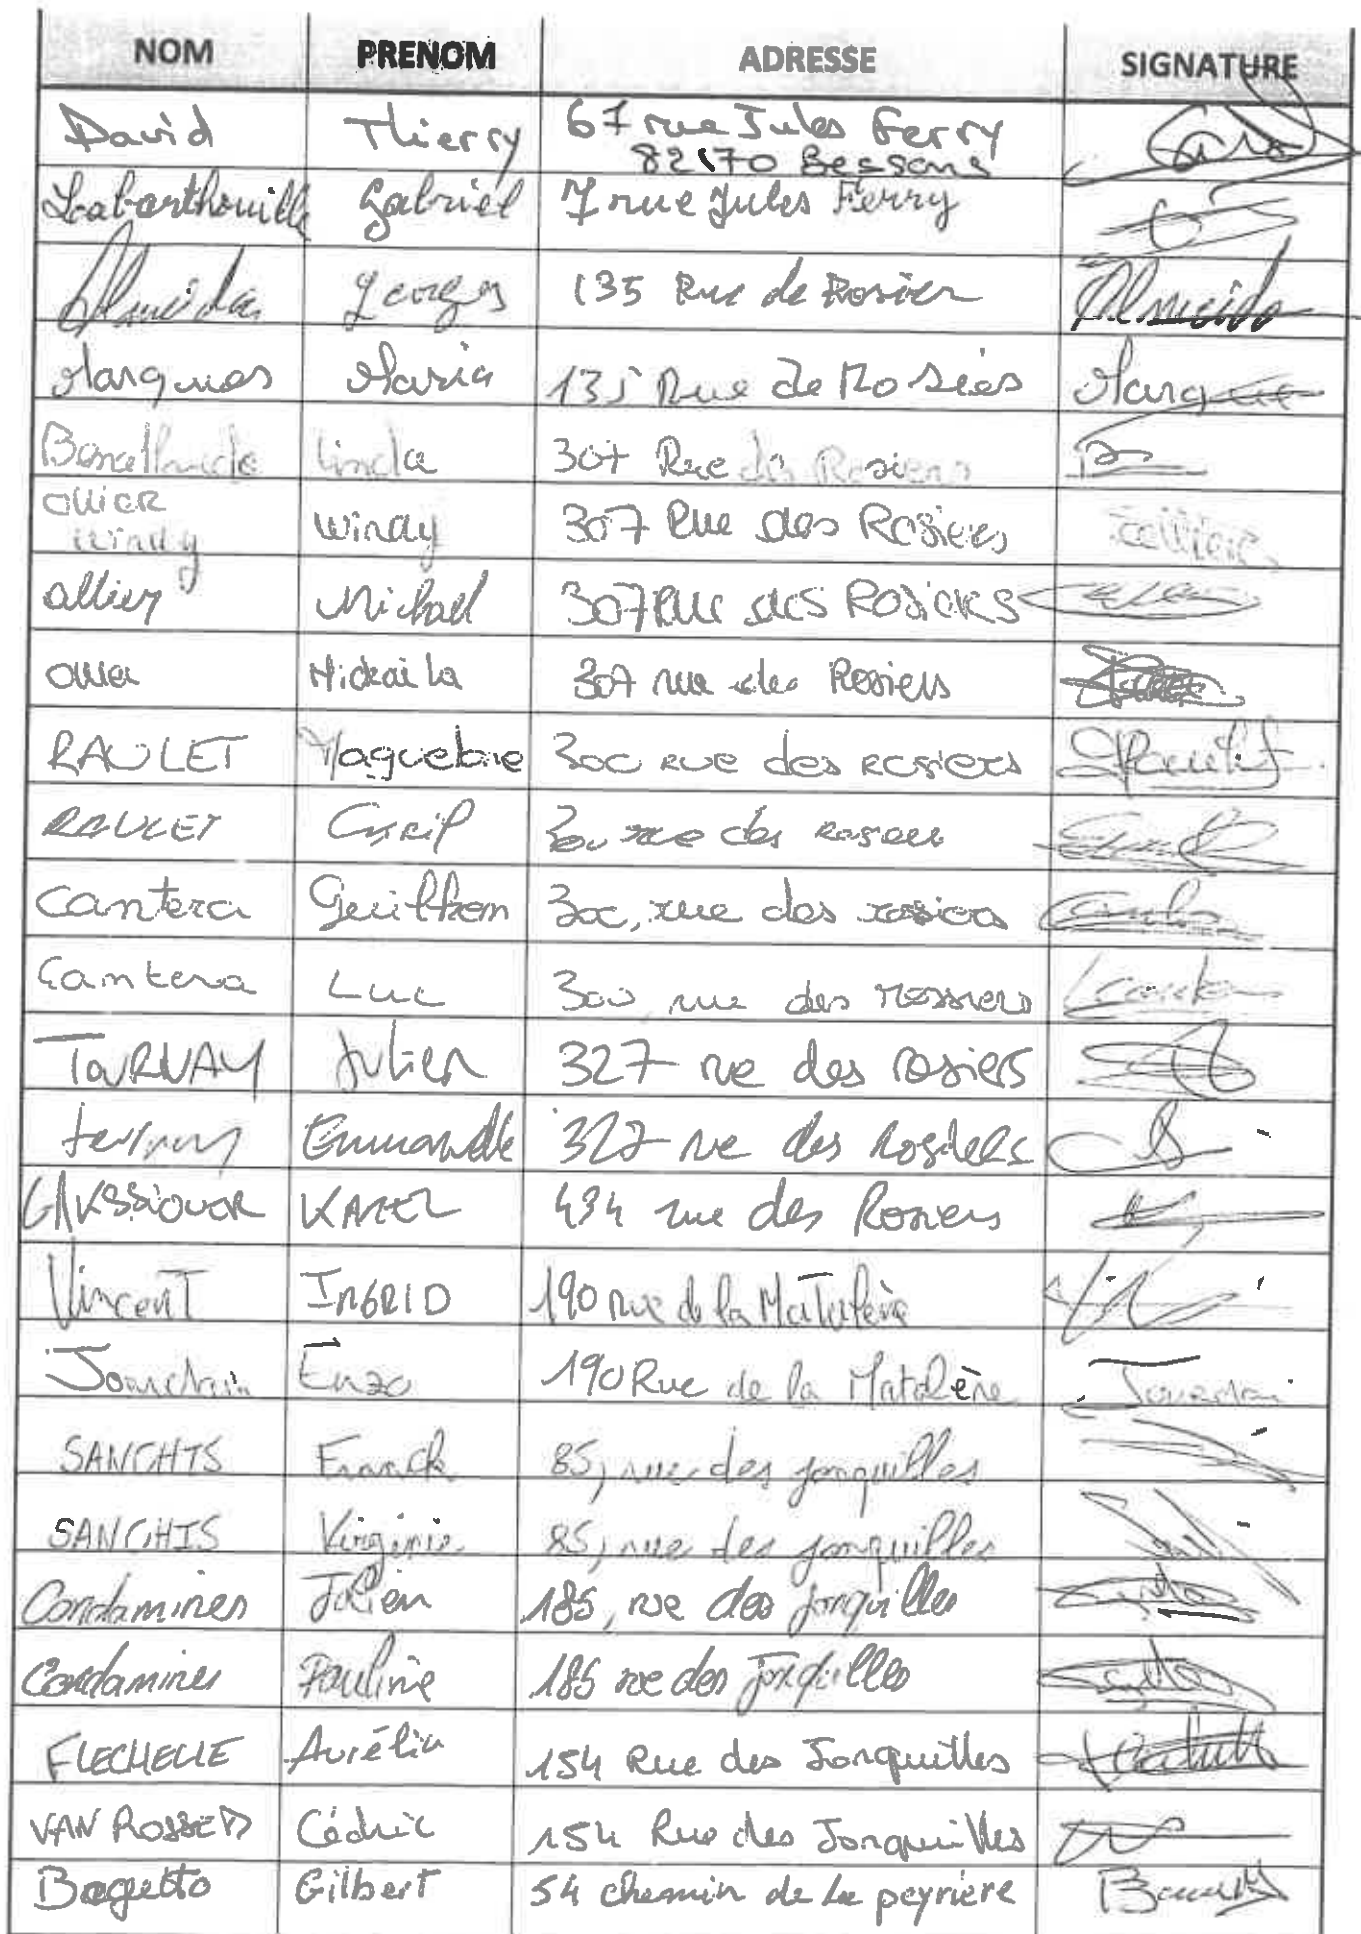 NOM PRENOM ADRESSE SIGNATURE
David Thierry 67 rue Jules Ferry
82170 Bessens
Labarthouille Gabriel 7 rue Jules Ferry
Almeida Georges 135 Rue de Rosier Almeida
Marques Maria 135 Rue de Rosiés Marques
Linda 307 Rue des Rosiers
Ollier
Windy Windy 307 Rue des Rosiers
Ollier Michael 307 Rue des Rosiers
Ollier Mickaila 307 rue des Rosiers
RAULET Maguelone 300 rue des rosiers
RAULET Cyril 300 rue des rosiers
Cantera Guilhem 300, rue des rosiers
Cantera Luc 300, rue des rossiers
TOURNAY Julien 327 rue des rosiers
Emmanuelle 327 rue des Rosiers
434 rue des Rosiers
Vincent INGRID 190 rue de la Matalène
Jourdain Enzo 190 Rue de la Matalène Jourdain
SANCHIS Franck 85, rue des jonquilles
SANCHIS Virginie 85, rue des jonquilles
Condamines Julien 185, rue des jonquilles
Condamines Pauline 185 rue des jonquilles
FLECHELLE Aurélia 154 Rue des Jonquilles
VAN ROSSEM Cédric 154 Rue des Jonquilles
Bagetto Gilbert 54 chemin de la peyrière